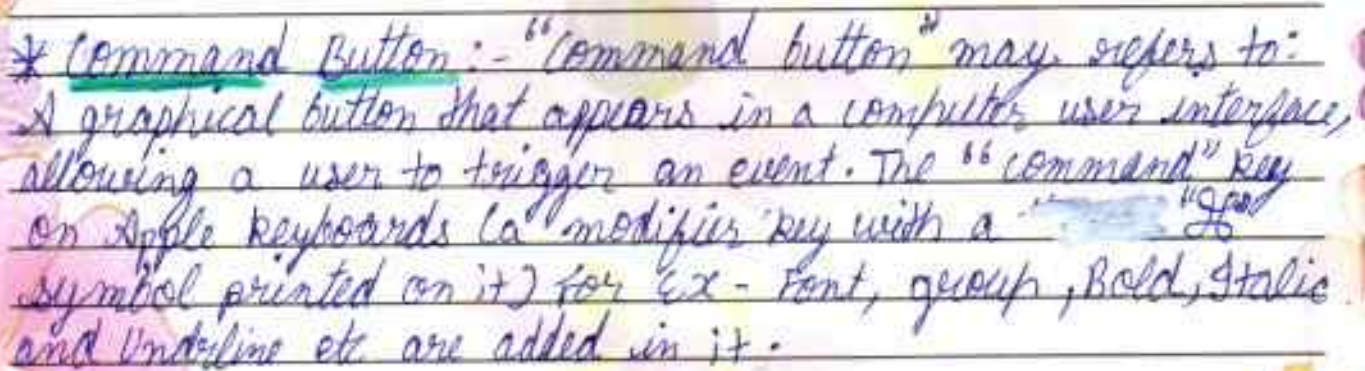 * Command Button :- "Command button" may refers to:
A graphical button that appears in a computer user interface,
allowing a user to trigger an event. The "command" key
on Apple keyboards (a modifier key with a "⌘"
symbol printed on it) For Ex - Font, group, Bold, Italic
and Undrline etc are added in it.